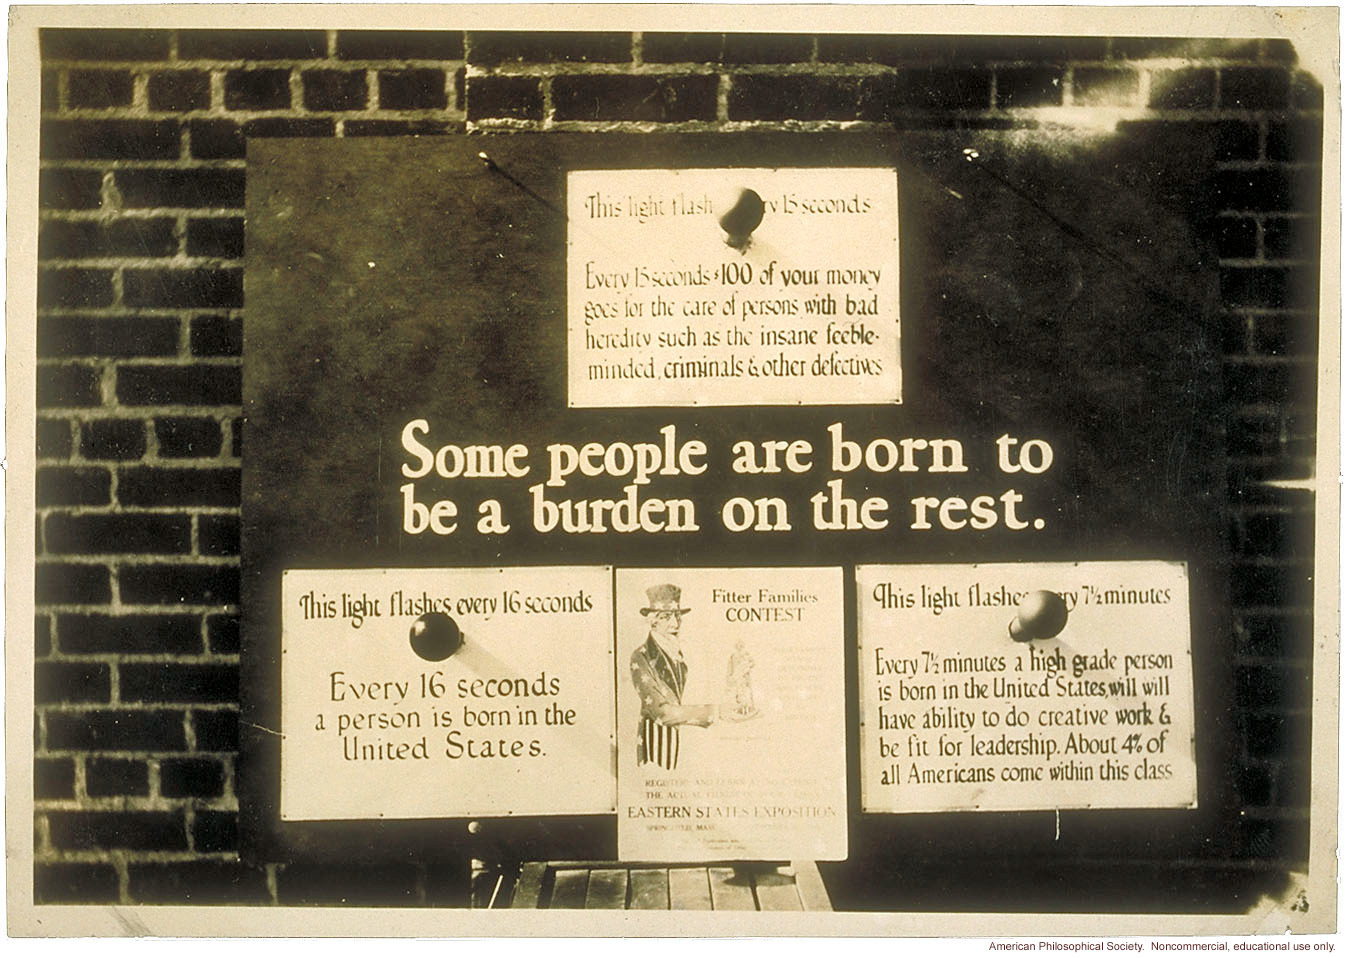 This light flash ry 15 seconds
Every 15 seconds $100 of your money
goes for the care of persons with bad
heredity such as the insane feeble-
minded, criminals & other defectives
Some people are born to
be a burden on the rest.
This light flashes every 16 seconds
Every 16 seconds
a person is born in the
United States.
Fitter Families
CONTEST
THE
EASTERN STATES EXPOSITION
SPRINGFIELD, MASS.
This light flashes ery 7½ minutes
Every 7½ minutes a high grade person
is born in the United States, will will
have ability to do creative work &
be fit for leadership. About 4% of
all Americans come within this class
American Philosophical Society. Noncommercial, educational use only.